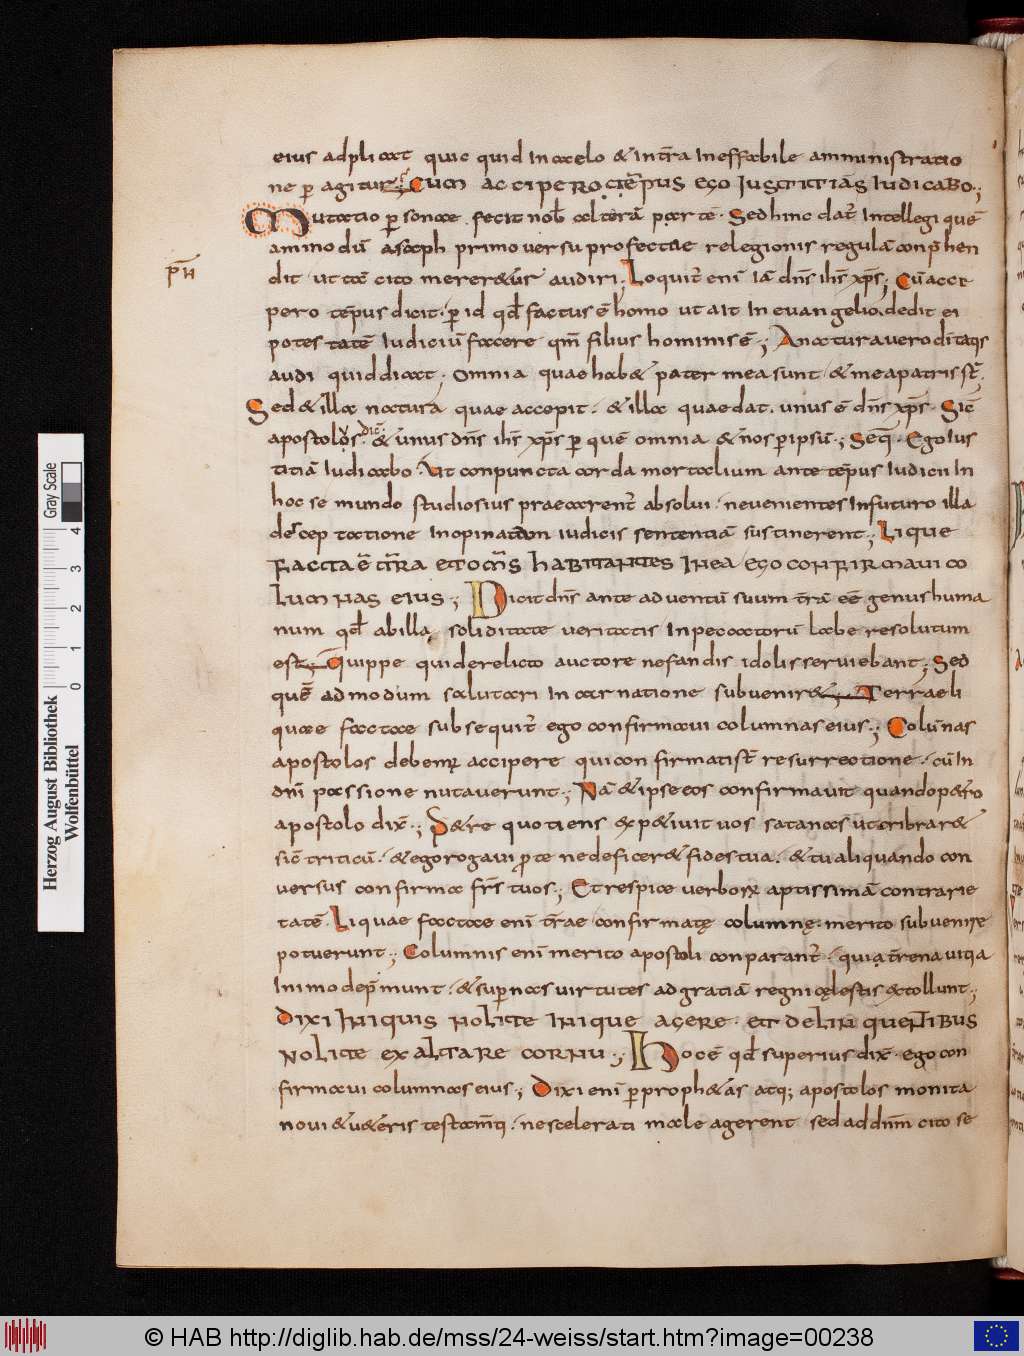 eius adpli cat quic quid In cælo & In tr̄a Ineffabile amministratio
ne p̱ agitur; Cum acciperο tēpus ego Iustitiās Iudicabo.;
Mutatio p̱sonae. fecit nob̄ alterā partē. Sed hinc dat̄ Intellegi quē
ammo dū asaph primo versu profectae relegionis regulā conp̄hen
pr̄n
dit. ut tā cito merer&ur audiri. Loquit̄ enī Iā dn̄s ih̄s xp̄s; Cū acce
pero tēpus dicit. p̱ id qd̄ factus ē homo ut aIt In evangelio. dedit ei
potestatē Iudiciū facere qm̄ filius hominis ē.; A natura vero dīitatis
audi quid dicat; omnia quae hab& pater mea sunt & mea patris st̄;
Sed & illa natura quae accepit. & illa quae dat. unus ē dn̄s xp̄s. Sic̄
apostolus dic̄. & unus dn̄s ih̄s xp̄s p̱ quē omnia & nos p̱ ipsū.; Seq̄. Ego Ius
titiā Iudicabo. Ut conpuncta corda mortalium ante tēpus Iudicii In
hoc se mundo studiosius praecarent̄ absolui. ne venientes In futuro illa
deceptatione Inopinatam Iudicis sententiā sustinerent.; Lique
facta ē tr̄a et om̄s habitantes In ea ego confirmavi co
lumnas eius.; Dicit dn̄s ante adventū suum tr̄ā eē genus huma
num qd̄ ab illa soliditate veritatis In peccatorū labe resolutum
est; Quippe qui derelicto auctore nefandis idolis serviebant.; Sed
quē admodum salutari Incarnatione subvenir&; Terrae li
quae factae subsequit̄ ego confirmavi columnas eius.; Colūnas
apostolos debemꝰ accipere qui confirmati st̄ resurrectione. cū In
dn̄i passione nutaverunt.; Nā & ipse eos confirmavit quando p&ro
apostolo dix̄.; P&re quotiens exp&ivit vos satanas ut cribrar&
sic̄ triticū. & ego rogavi p̱ te ne deficer& fides tua. & tu aliquando con
versus confirma fr̄s tuos.; Et respice verboꝝ aptissimā contrarie
tatē. Liquae factae enī tr̄ae confirmatę columnę. merito subvenire
potuerunt.; Columnis enī merito apostoli conparant̄. quia tr̄ena vitia
In imo dep̄munt. & sup̱nas virtutes ad gratiā regni cęlestis extollunt.;
Dixi Iniquis nolite Inique agere. et delinquentibus
nolite exaltare cornu.; Hoc ē qd̄ superius dix̄. ego con
firmavi columnas eius.; Dixi enī p̱ proph&as atq; apostolos monita
novi & v&eris testam̄ti. ne scelerati male agerent sed ad dn̄m cito se
Herzog August Bibliothek
Wolfenbüttel
0 1 2 3 4
Gray Scale
© HAB http://diglib.hab.de/mss/24-weiss/start.htm?image=00238